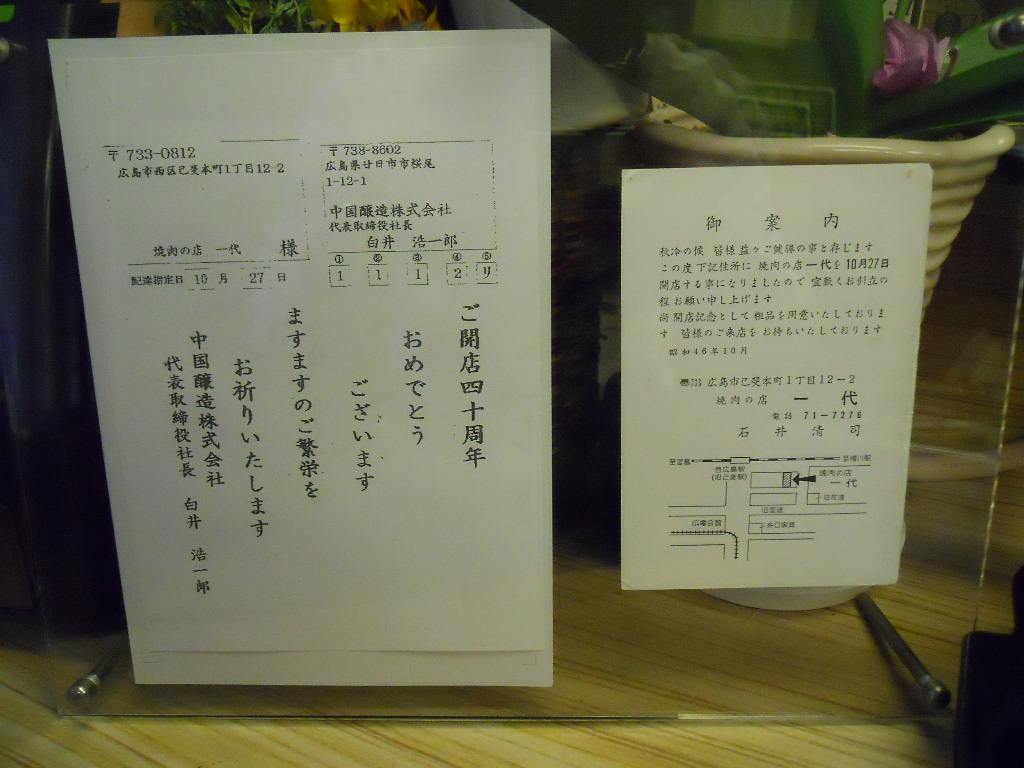 〒733-0812
広島市西区己斐本町1丁目12-2
焼肉の店 一代 様
配達指定日 10 月 27 日
〒738-8602
広島県廿日市市桜尾
1-12-1
中国醸造株式会社
代表取締役社長
白井 浩一郎
① ② ③ ④ ⑤
1 1 1 2 リ
ご開店四十周年
おめでとう
ございます
ますますのご繁栄を
お祈りいたします
中国醸造株式会社
代表取締役社長 白井 浩一郎
御案内
秋冷の候 皆様益々ご健勝の事と存じます
この度下記住所に 焼肉の店一代を10月27日
開店する事になりましたので 宜敷くお引立の
程お願い申し上げます
尚開店記念として粗品を用意いたしておりま
す 皆様のご来店をお待ちいたしております
昭和46年10月
〠733 広島市己斐本町1丁目12-2
焼肉の店 一代
電話 71-7276
石井清司
至宮島
至横川駅
西広島駅
(旧己斐駅)
焼肉の店
一代
旧花満
旧国道
広電会館
井口家具